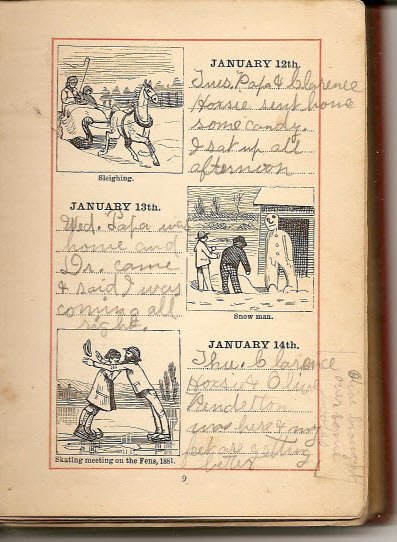 JANUARY 12th.
Tues. Papa & Clarence
Hoxsie sent home
some candy.
I sat up all
afternoon
Sleighing.
JANUARY 13th.
Wed. Papa was
home and
Dr. came
& said I was
coming all
right.
Snow man.
JANUARY 14th.
Thu. Clarence
Hoxsie & Olive
Penderton
was here & my
are getting
better
Olive brought
over some
Skating meeting on the Fens, 1881.
9